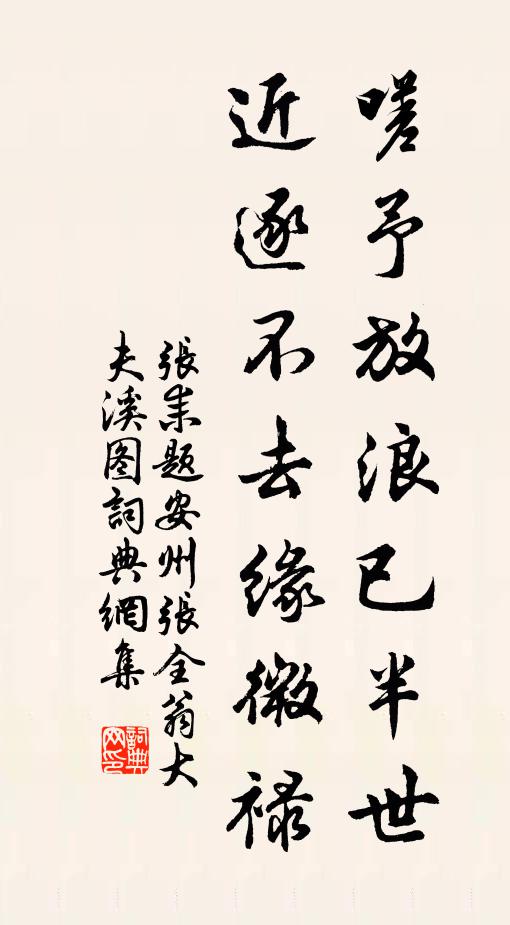 嗟予放浪已半世
近逐不去緣微禄
張耒題安州張全翁大
夫溪图詞典網集
詞典网印